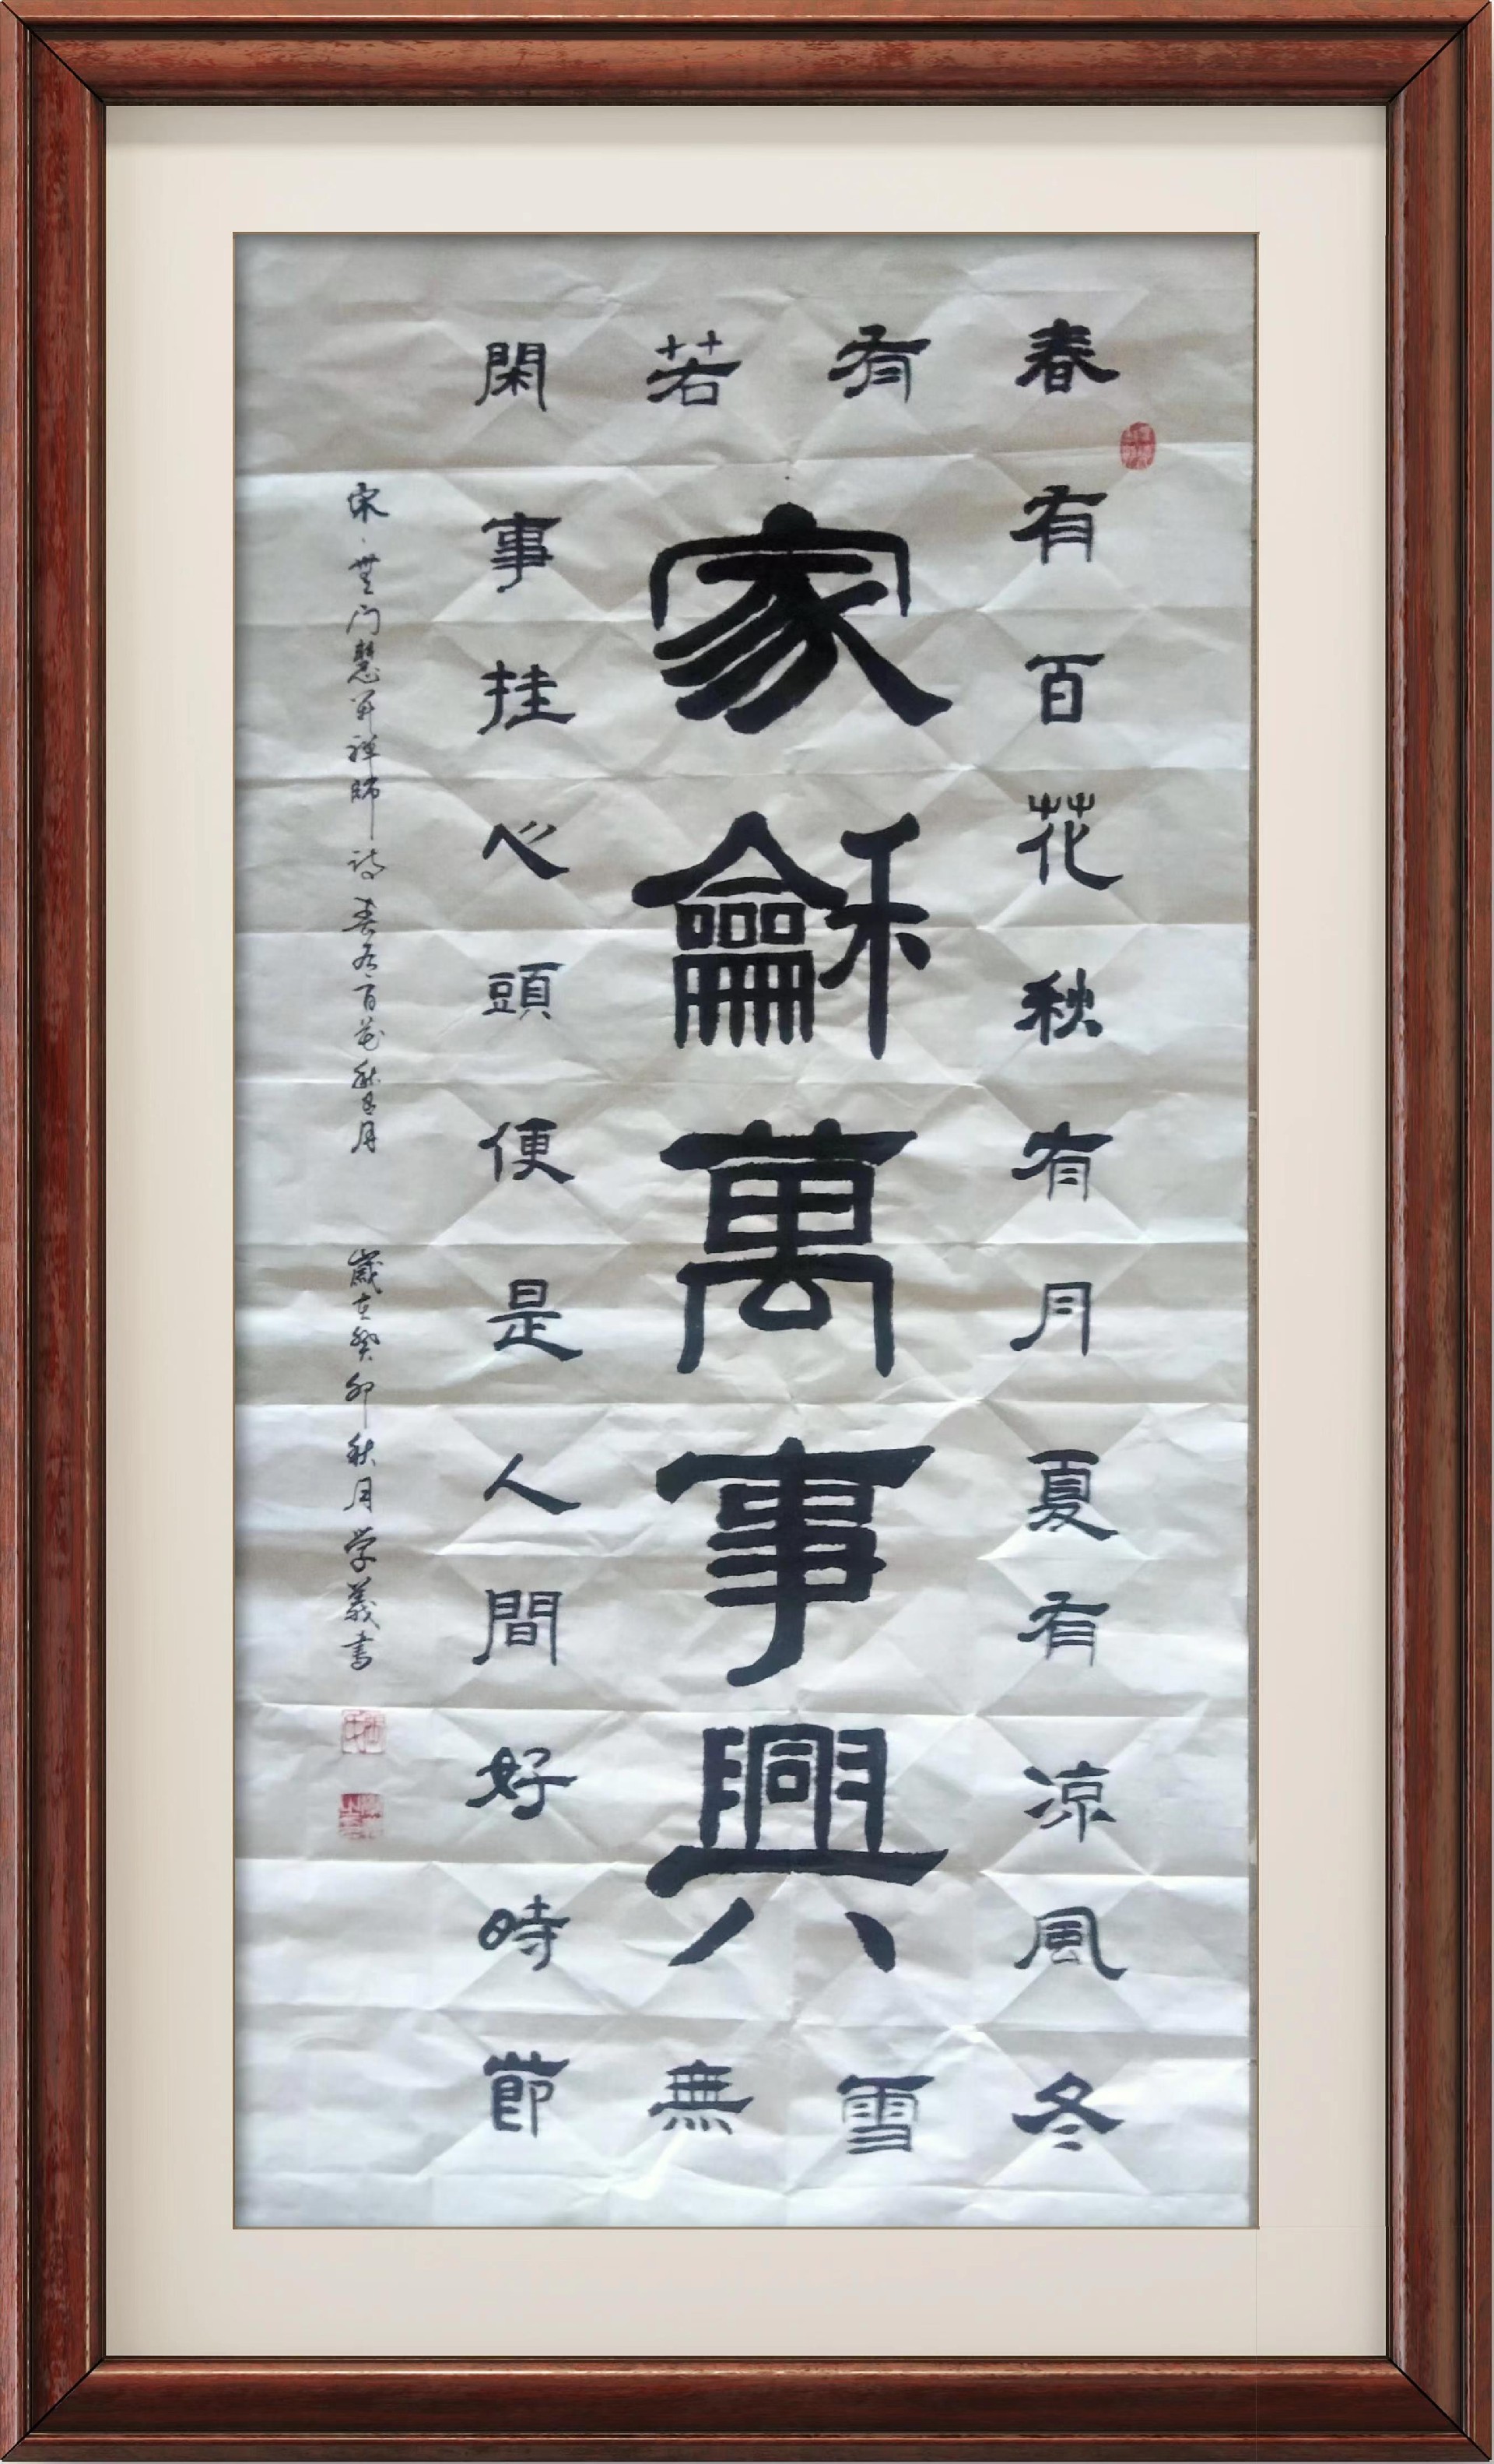 春有百花秋有月夏有凉風冬
有雪
若無
家龢萬事興
閑事挂心頭便是人間好時節
宋、無门慧开禪師诗春有百花秋有月 歲在癸卯秋月学義書